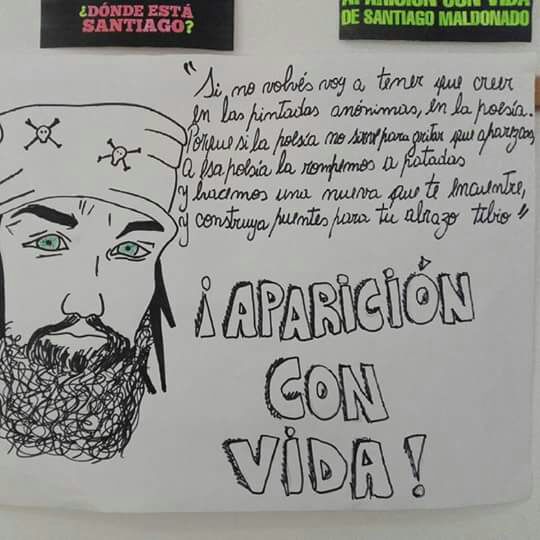 ¿DÓNDE ESTÁ
SANTIAGO?
APARICIÓN CON VIDA
DE SANTIAGO MALDONADO
"Si, no volvés voy a tener que creer
en las pintadas anónimas, en la poesía.
Porque si la poesía no sirve para gritar que aparezcas,
a esa poesía la rompemos a patadas
y hacemos una nueva que te encuentre,
y construya puentes para tu abrazo tibio"
¡APARICIÓN
CON
VIDA!